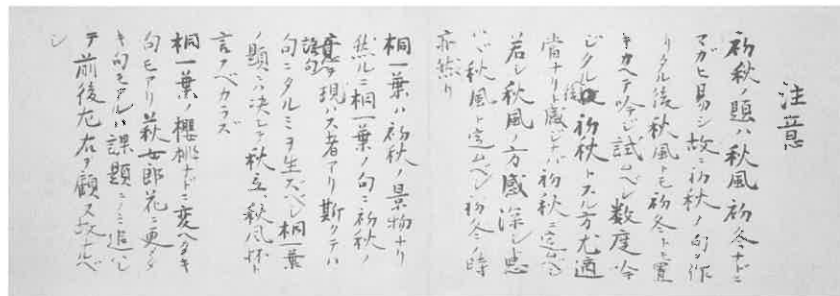 注意
初秋ノ題ハ秋風初冬ナドニ
マガヒ易シ故ニ初秋ノ句ヲ作
リタル後秋風トモ初冬トモ置
キカヘテ吟ジ試ムベシ数度吟
ジタル後初秋トスル方尤適
当ナリト感ジナバ初秋ニ定ムベシ
若シ秋風ノ方感深シト思
ハバ秋風ト定ムベシ初冬ノ時
亦然リ
桐一葉ハ初秋ノ景物ナリ
然ルニ桐一葉ノ句ニ初秋ノ
意ヲ現ハス者アリ斯クテハ
句ニタルミヲ生ズベシ桐一葉
ノ題ニハ決シテ秋立、秋風杯ト
言フベカラズ
桐一葉ノ櫻桃ナドニ変ヘタキ
句モアリ萩女郎花ニ更ヘタ
キ句モアルハ課題ニノミ追ハレ
テ前後左右ヲ顧ヌ故ナルベ
シ